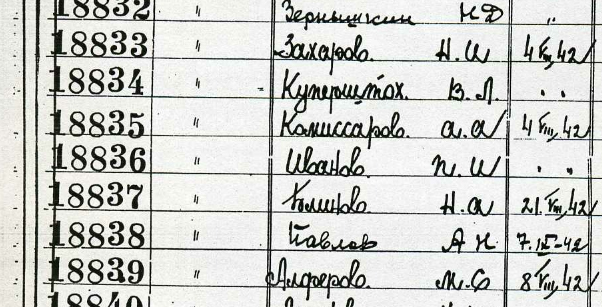 18832 " Зернышкин Н Д "
18833 " Захаров. Н. И 4 VIII 42
18834 " Куперштох. В. Л. " "
18835 " Комиссаров. А. А 4 VIII 42
18836 " Иванов. П. И " "
18837 " Н. А 21. VIII 42
18838 " Павлов А Н 7. IX-42
18839 " Алферов. М. Ф 8 VIII 42
18840